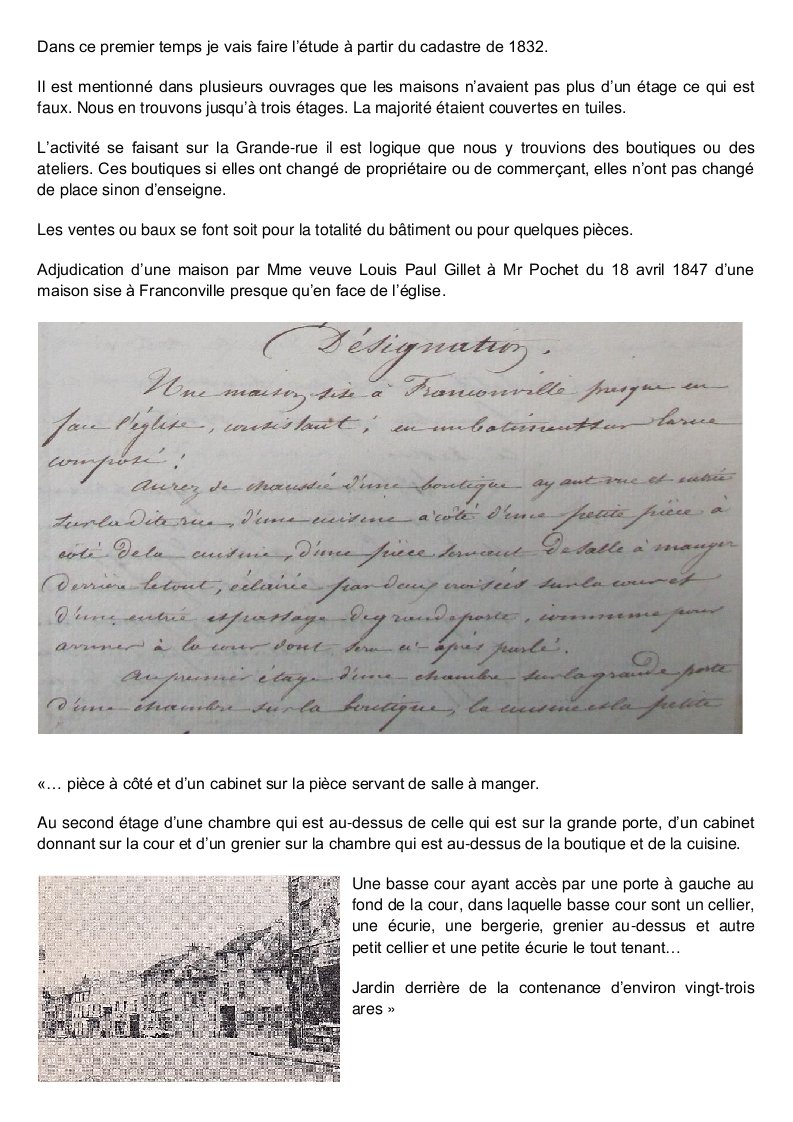 Dans ce premier temps je vais faire l’étude à partir du cadastre de 1832.
Il est mentionné dans plusieurs ouvrages que les maisons n’avaient pas plus d’un étage ce qui est
faux. Nous en trouvons jusqu’à trois étages. La majorité étaient couvertes en tuiles.
L’activité se faisant sur la Grande-rue il est logique que nous y trouvions des boutiques ou des
ateliers. Ces boutiques si elles ont changé de propriétaire ou de commerçant, elles n’ont pas changé
de place sinon d’enseigne.
Les ventes ou baux se font soit pour la totalité du bâtiment ou pour quelques pièces.
Adjudication d’une maison par Mme veuve Louis Paul Gillet à Mr Pochet du 18 avril 1847 d’une
maison sise à Franconville presque qu’en face de l’église.
Désignation.
Une maison sise à Franconville presque en
face l'église, consistant ; en un batiment sur la rue
composé :
Au rez de chaussée d'une boutique ayant vue et entrée
sur la dite rue, d'une cuisine à côté d'une petite pièce à
côté de la cuisine, d'une pièce servant de salle à manger
derrière le tout, éclairée par deux croisées sur la cour et
d'une entrée et passage de grande porte, commune pour
arriver à la cour dont sera ci-après parlé.
Au premier étage d'une chambre sur la grande porte
d'une chambre sur la boutique, la cuisine et la petite
«… pièce à côté et d’un cabinet sur la pièce servant de salle à manger.
Au second étage d’une chambre qui est au-dessus de celle qui est sur la grande porte, d’un cabinet
donnant sur la cour et d’un grenier sur la chambre qui est au-dessus de la boutique et de la cuisine.
Une basse cour ayant accès par une porte à gauche au
fond de la cour, dans laquelle basse cour sont un cellier,
une écurie, une bergerie, grenier au-dessus et autre
petit cellier et une petite écurie le tout tenant…
Jardin derrière de la contenance d’environ vingt-trois
ares »